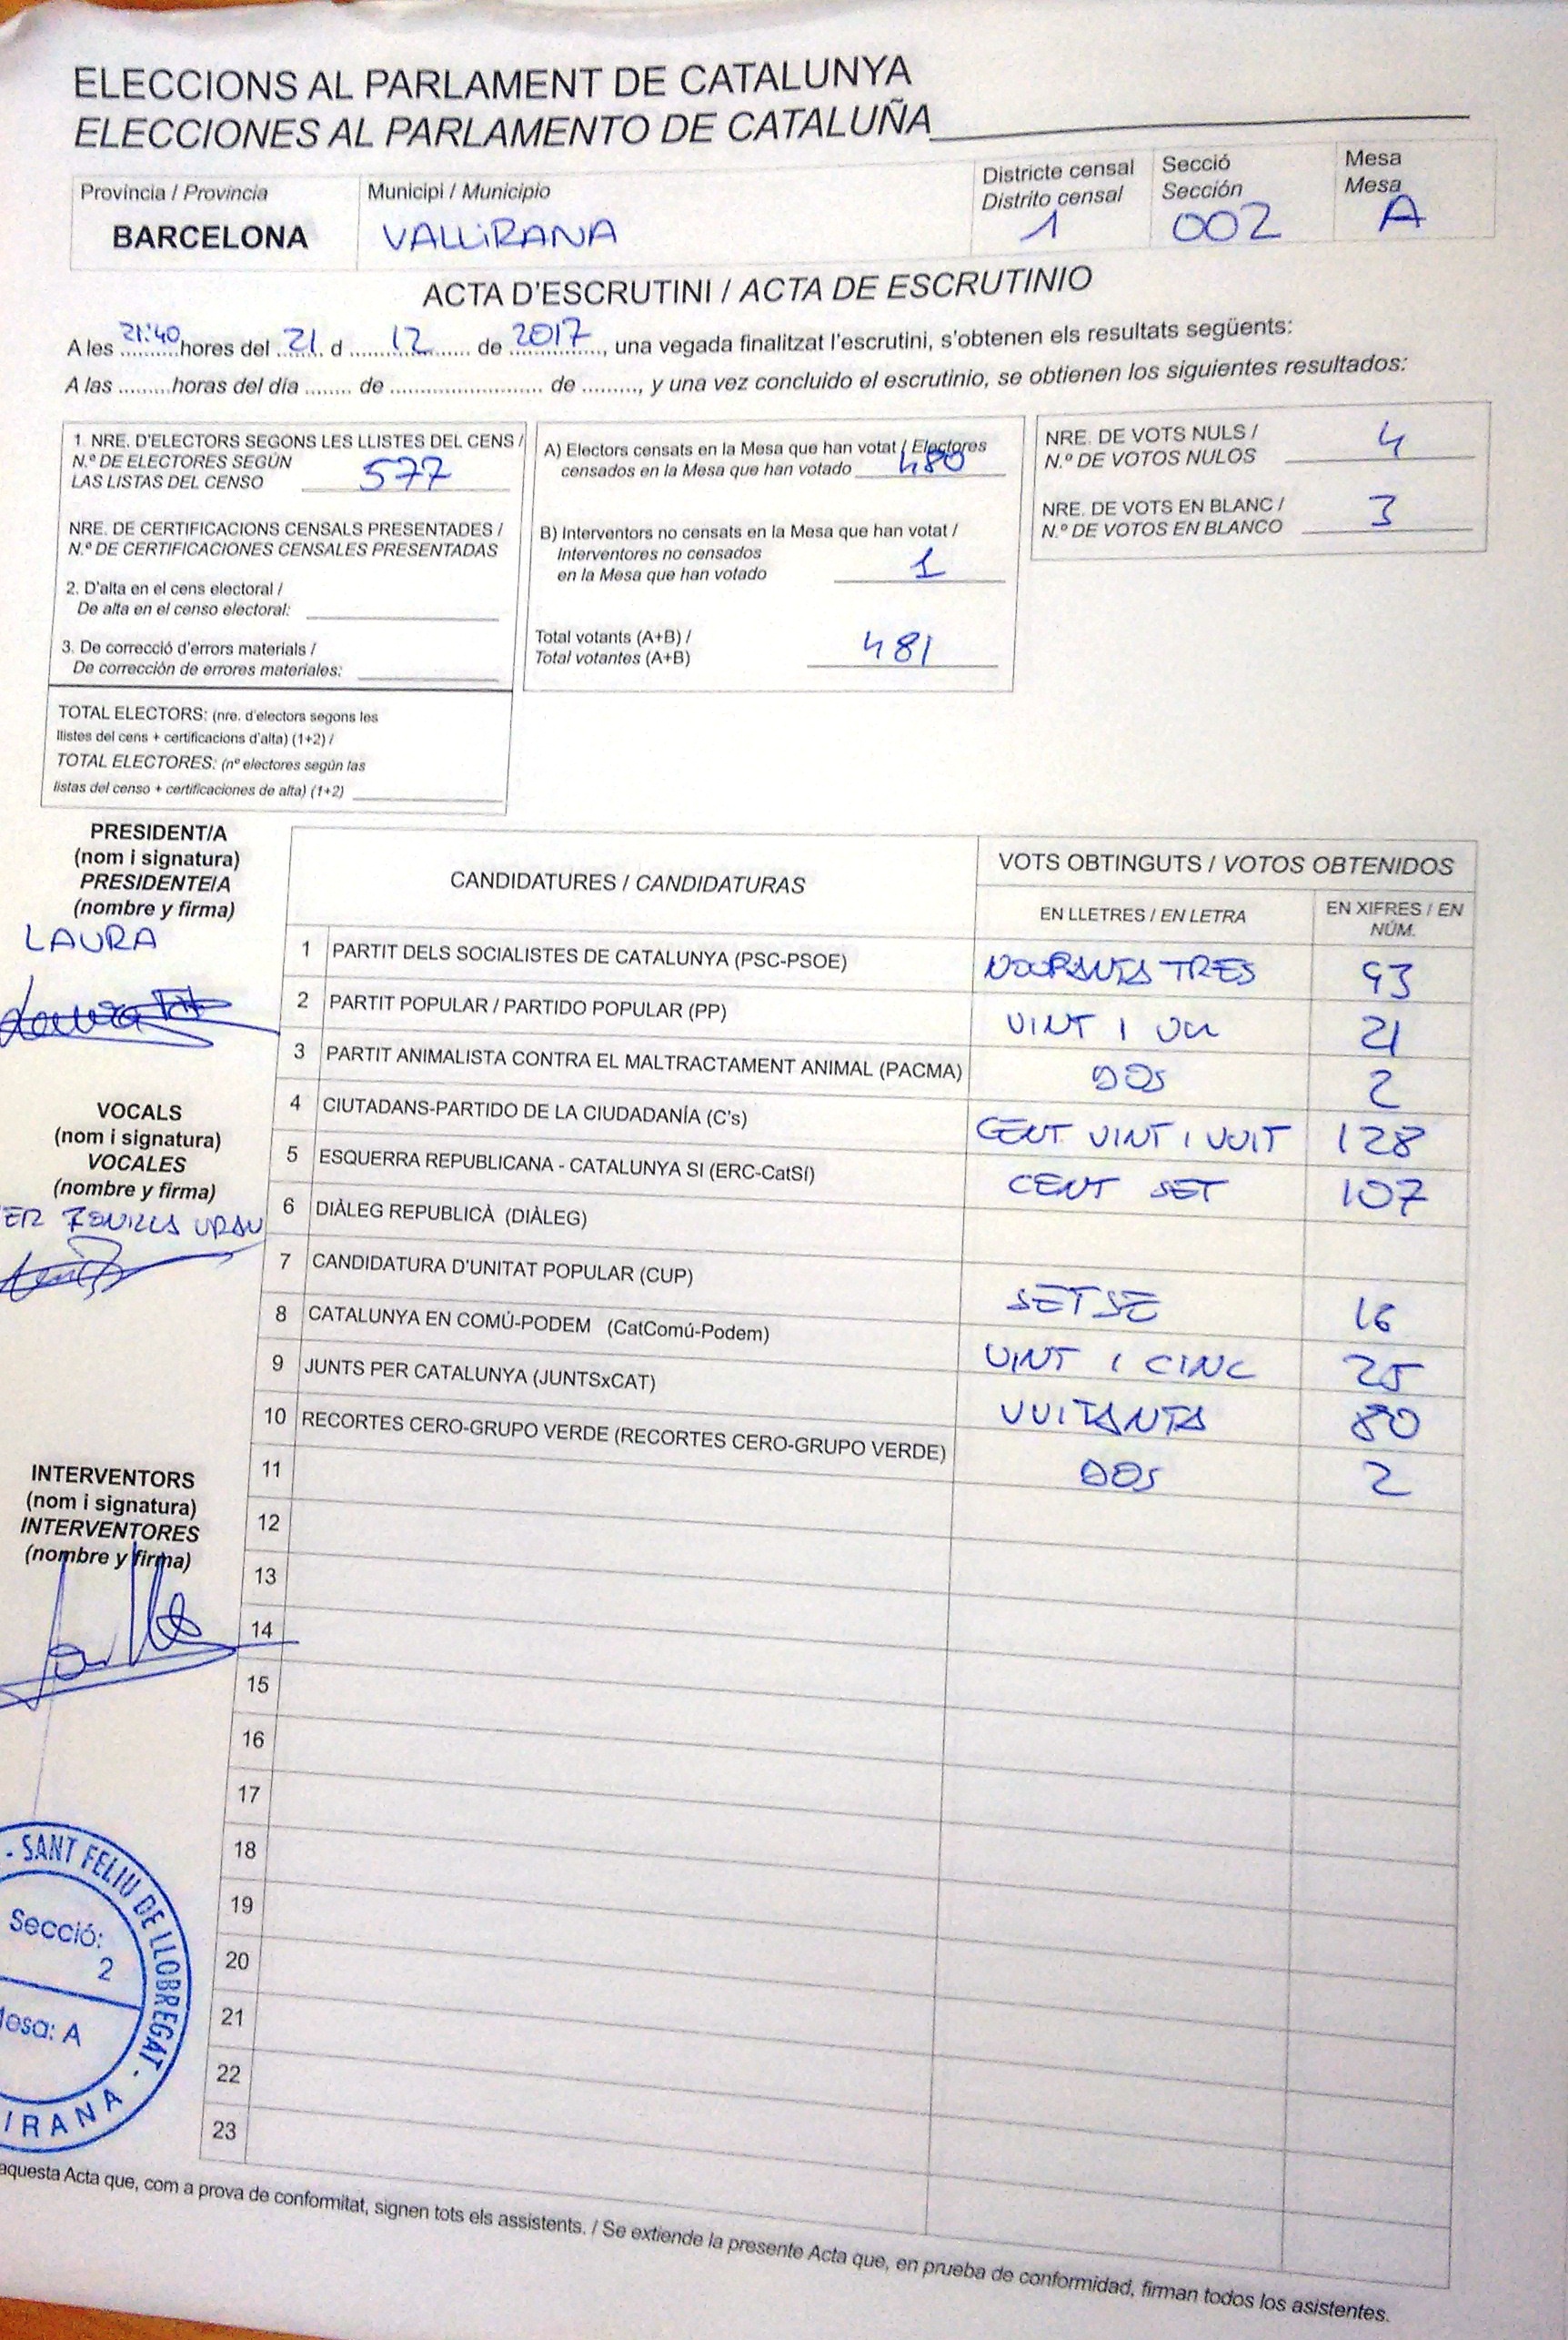 ELECCIONS AL PARLAMENT DE CATALUNYA
ELECCIONES AL PARLAMENTO DE CATALUÑA
Província / Provincia
Municipi / Municipio
Districte censal
Distrito censal
Secció
Sección
Mesa
Mesa
BARCELONA
VALLIRANA
1
002
A
ACTA D'ESCRUTINI / ACTA DE ESCRUTINIO
A les 21:40 hores del 21 d 12 de 2017, una vegada finalitzat l'escrutini, s'obtenen els resultats següents:
A las .........horas del día ........ de .......................... de .........., y una vez concluido el escrutinio, se obtienen los siguientes resultados:
1. NRE. D'ELECTORS SEGONS LES LLISTES DEL CENS /
N.º DE ELECTORES SEGÚN
LAS LISTAS DEL CENSO 577
NRE. DE CERTIFICACIONS CENSALS PRESENTADES /
N.º DE CERTIFICACIONES CENSALES PRESENTADAS
2. D'alta en el cens electoral /
De alta en el censo electoral:
3. De correcció d'errors materials /
De corrección de errores materiales:
TOTAL ELECTORS: (nre. d'electors segons les
llistes del cens + certificacions d'alta) (1+2) /
TOTAL ELECTORES: (nº electores según las
listas del censo + certificaciones de alta) (1+2)
A) Electors censats en la Mesa que han votat / Electores
censados en la Mesa que han votado 480
B) Interventors no censats en la Mesa que han votat /
Interventores no censados
en la Mesa que han votado 1
Total votants (A+B) /
Total votantes (A+B) 481
NRE. DE VOTS NULS /
N.º DE VOTOS NULOS 4
NRE. DE VOTS EN BLANC /
N.º DE VOTOS EN BLANCO 3
PRESIDENT/A
(nom i signatura)
PRESIDENTE/A
(nombre y firma)
LAURA
VOCALS
(nom i signatura)
VOCALES
(nombre y firma)
INTERVENTORS
(nom i signatura)
INTERVENTORES
(nombre y firma)
CANDIDATURES / CANDIDATURAS
VOTS OBTINGUTS / VOTOS OBTENIDOS
EN LLETRES / EN LETRA
EN XIFRES / EN
NÚM.
1 PARTIT DELS SOCIALISTES DE CATALUNYA (PSC-PSOE) NOURANTA TRES 93
2 PARTIT POPULAR / PARTIDO POPULAR (PP) VINT I UN 21
3 PARTIT ANIMALISTA CONTRA EL MALTRACTAMENT ANIMAL (PACMA) DOS 2
4 CIUTADANS-PARTIDO DE LA CIUDADANÍA (C's) CENT VINT I VUIT 128
5 ESQUERRA REPUBLICANA - CATALUNYA SI (ERC-CatSí) CENT SET 107
6 DIÀLEG REPUBLICÀ (DIÀLEG)
7 CANDIDATURA D'UNITAT POPULAR (CUP) SETSE 16
8 CATALUNYA EN COMÚ-PODEM (CatComú-Podem) VINT I CINC 25
9 JUNTS PER CATALUNYA (JUNTSxCAT) VUITANTA 80
10 RECORTES CERO-GRUPO VERDE (RECORTES CERO-GRUPO VERDE) DOS 2
11
12
13
14
15
16
17
18
19
20
21
22
23
- SANT FELIU DE LLOBREGAT -
Secció:
2
Mesa: A
IRANA
aquesta Acta que, com a prova de conformitat, signen tots els assistents. / Se extiende la presente Acta que, en prueba de conformidad, firman todos los asistentes.